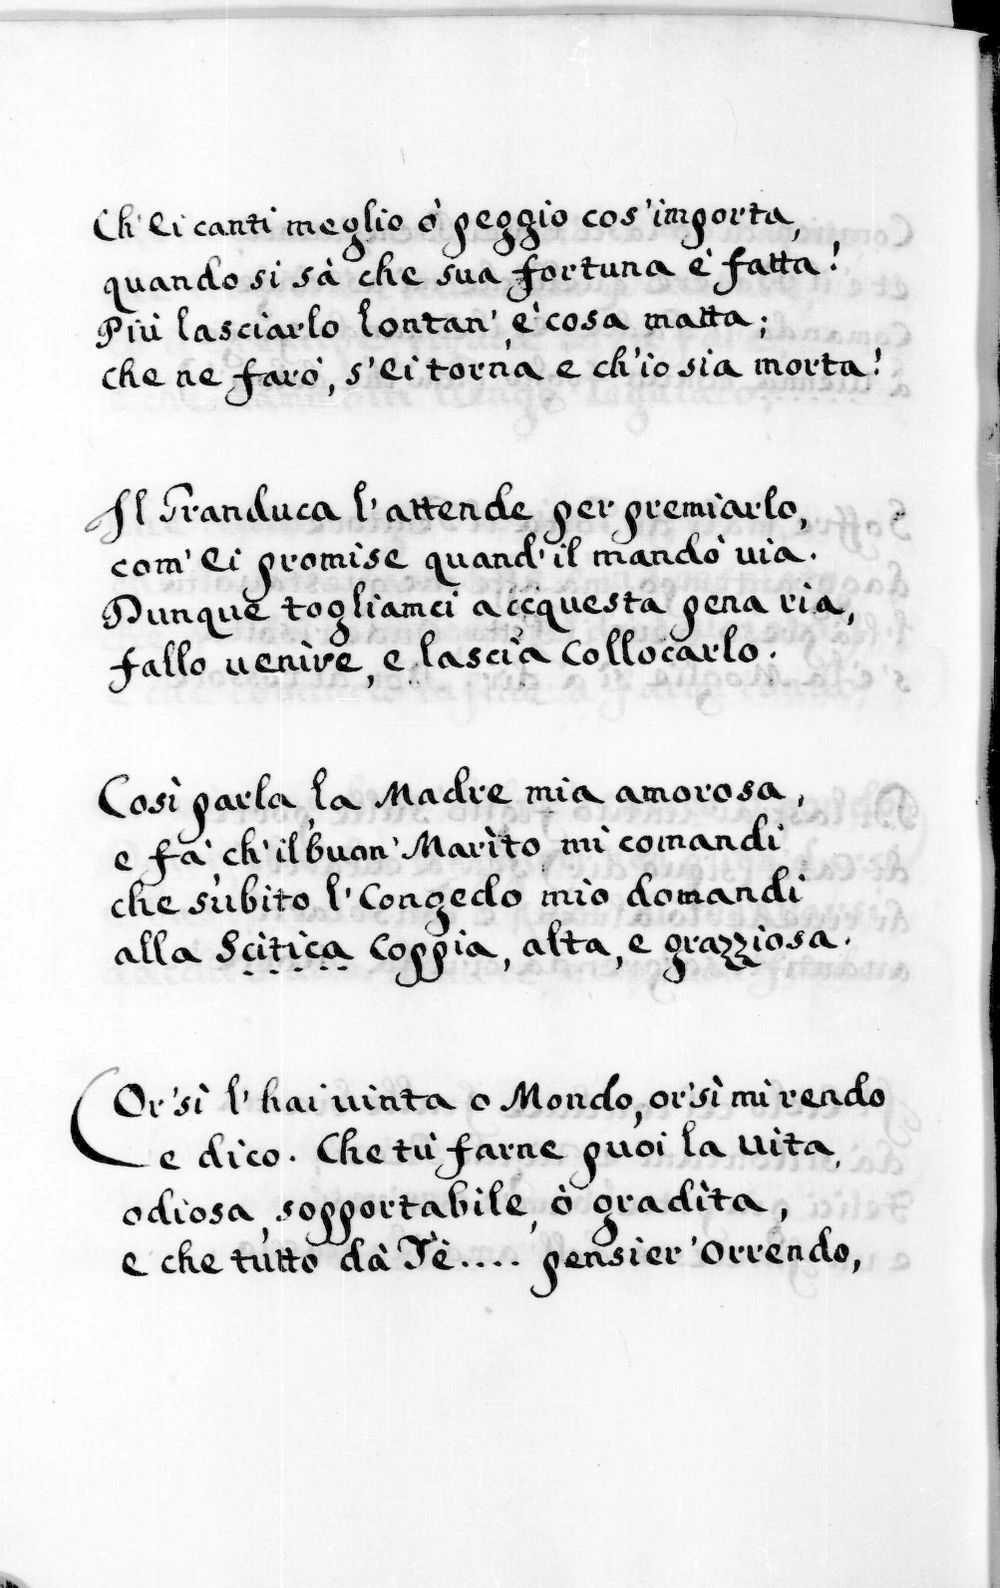 Ch'Ei canti meglio ò peggio cos'importa,
quando si sà che sua fortuna è fatta!
Più lasciarlo lontan', è cosa matta;
che ne farò, s'Ei torna e ch'io sia morta!
Il Granduca l'attende per premiarlo,
com'Ei promise quand'il mandò via.
Dunque togliamci accquesta pena ria,
fallo venire, e lascia Collocarlo.
Così parla, la Madre mia amorosa,
e fà, ch'il buon' Marìto mi comandi
che subito l'Congedo mio domandi
alla Scitica Coppia, alta, e grazziosa.
Or'sì l'hai vinta o Mondo, or'sì mì rendo
e dico. Che tù farne puoi la vita,
odiosa, sopportabile, ò gradìta,
e che tutto dà Tè.... pensier'Orrendo,